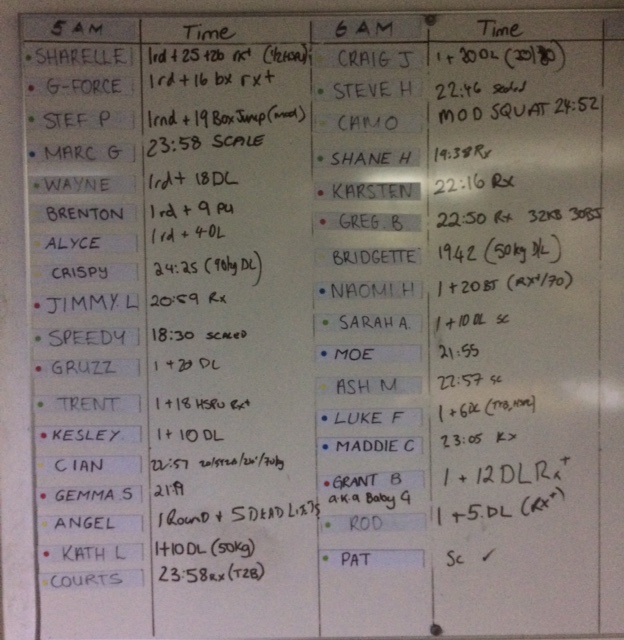 5 AM Time 6 AM Time
SHARELLE 1rd + 25 + 2b rx+ CRAIG J 1 + 30 DL
G-FORCE 1rd + 16 bx rx+ STEVE H 22:46 scaled
STEF P 1rnd + 19 Box Jump (mod) CAMO MOD SQUAT 24:52
MARC G 23:58 SCALE SHANE H 19:38 Rx
WAYNE 1rd + 18 DL KARSTEN 22:16 Rx
BRENTON 1rd + 9 PU GREG. B 22:50 Rx 32KB 30BJ
ALYCE 1rd + 4 DL BRIDGETTE 1942 (50kg D/L)
CRISPY 24:25 (90kg DL) NAOMI H 1 + 20 BJ (RX+/70)
JIMMY L 20:59 Rx SARAH A. 1 + 10 DL SC
SPEEDY 18:30 SCALED MOE 21:55
GRUZZ 1 + 20 DL ASH M 22:57 SC
TRENT 1 + 18 HSPU Rx+ LUKE F 1 + 6 DL
KESLEY 1 + 10 DL MADDIE C 23:05 Rx
CIAN 22:57 GRANT B 1 + 12 DL Rx+
a.k.a Baby G
GEMMA S 21:19
ANGEL 1 Round + 5 DEAD Lifts ROD 1 + 5 DL (Rx+)
KATH L 1+10 DL (50kg) PAT SC ✓
COURTS 23:58 Rx (T2B)